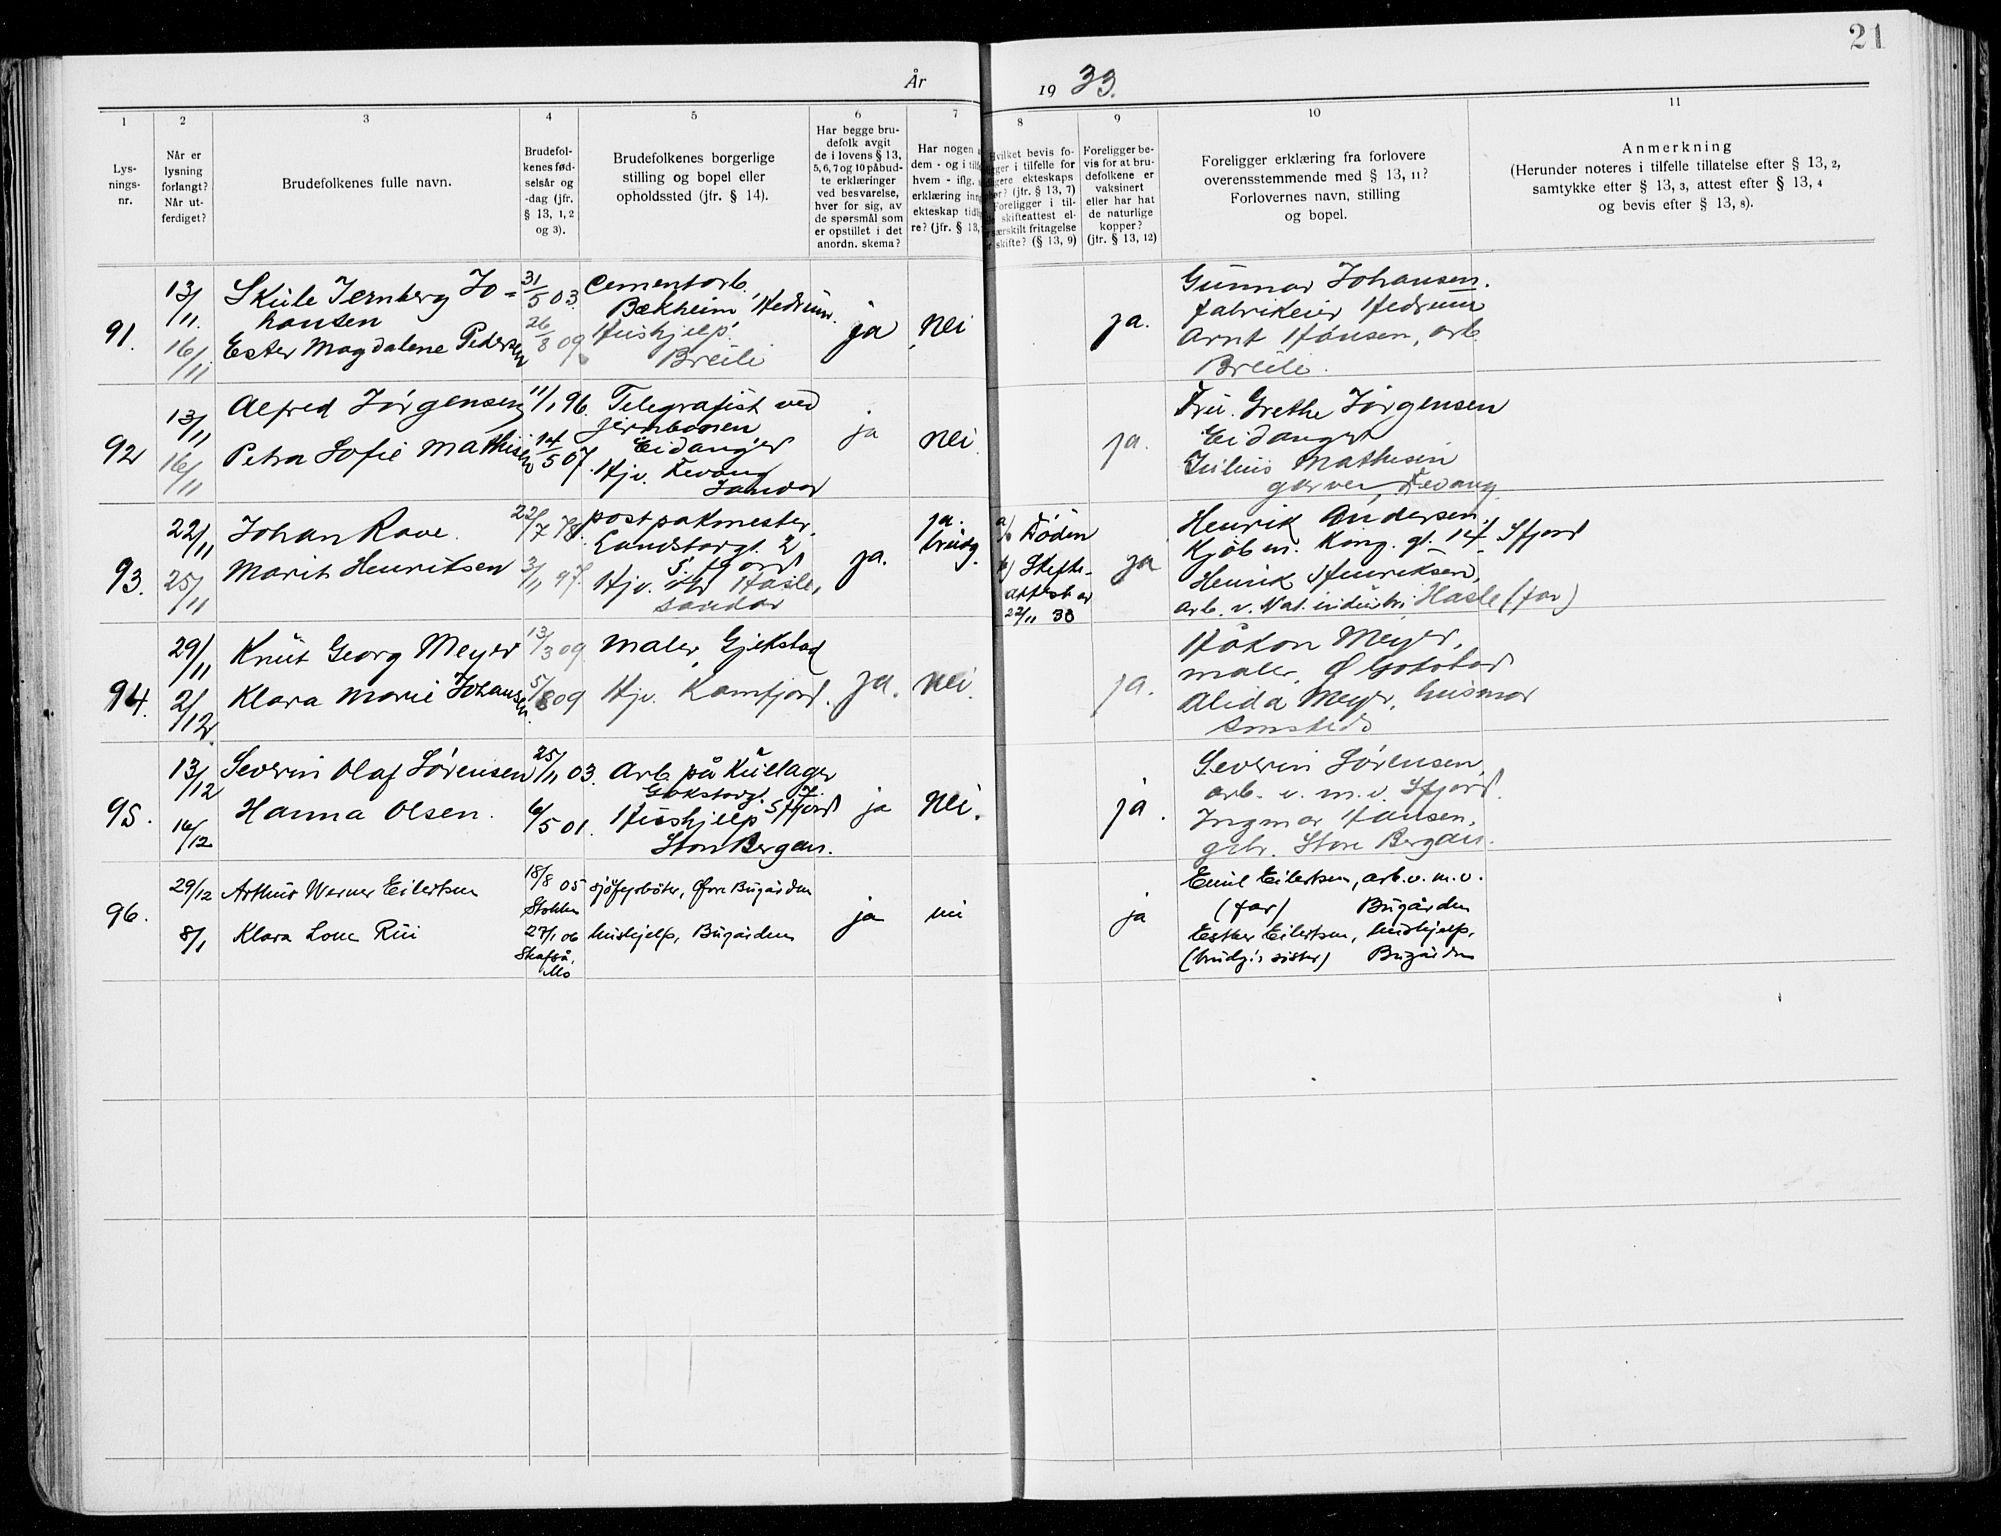 21
År 1933.
1
2
3
4
5
6
7
8
9
10
11
Lys-
nings-
nr.
Når er
lysning
forlangt?
Når ut-
ferdiget?
Brudefolkenes fulle navn.
Brudefol-
kenes fød-
selsår og
-dag (jfr.
§ 13, 1, 2
og 3).
Brudefolkenes borgerlige
stilling og bopel eller
opholdssted (jfr. § 14).
Har begge bru-
defolk avgit
de i lovens § 13,
5, 6, 7 og 10 påbud-
te erklæringer
ved besvarelse,
hver for sig, av
de spørsmål som
er opstillet i det
anordn. skema?
Har nogen
dem - og i
hvem - iflg.
erklæring
ekteskap
re? (jfr. § 13,
bevis fo-
i tilfelle for
ekteskaps
(jfr. § 13, 7)
Foreligger i til-
skifteattest el-
særskilt fritagelse
skifte? (§ 13, 9)
Foreligger be-
vis for at bru-
defolkene er
vaksinert
eller har hat
de naturlige
kopper?
(jfr. § 13, 12)
Foreligger erklæring fra forlovere
overensstemmende med § 13, 11?
Forlovernes navn, stilling
og bopel.
Anmerkning
(Herunder noteres i tilfelle tillatelse efter § 13, 2,
samtykke efter § 13, 3, attest efter § 13, 4
og bevis efter § 13, 8).
91.
13/11.
16/11
Skule Jernberg Jo-
hansen
Ester Magdalene Pedersen
31/5 03.
26/8 09
Cementarb.
Bækheim, Hedrum.
Hushjelp.
Breili
ja
nei
ja.
Gunnar Johansen.
fabrikeier Hedrum
Arnt Hansen, arb.
Breili.
92
13/11
16/11
Alfred Jørgensen
Petra Sofie Mathisen
11/1 96.
14/5 07.
Telegrafist ved
jernbanen
Eidanger
Hjv. Fevang
Sandar
ja
nei
ja.
Fru. Grethe Jørgensen
Eidanger
Julius Mathisen
garver, Fevang
93.
22/11
25/11
Johan Rave.
Marit Henriksen
22/7 78.
3/11 97.
postpakmester.
Landstadgt. 2
S. fjord
Hjv. Hasle,
Sandar
ja.
ja.
brudg.
a/ Døden
b) Skifte-
attest av
22/11 33
ja
Henrik Andersen.
Kjøbm. Kong. gt. 14 Sfjord
Henrik Henriksen,
arb. v. Nat. industri, Hasle (far)
94.
29/11
2/12.
Knut Georg Meyer
Klara Marie Johansen.
13/3 09
5/8 09
Maler, Gjekstad
Hjv. Kamfjord.
ja.
nei.
ja.
Håkon Meyer,
maler, Ø Gokstad
Alida Meyer, husmor
smsteds
95.
13/12
16/12
Severin Olaf Sørensen
Hanna Olsen.
25/11 03.
6/5 01.
Arb på Kullager
Gokstadgt.
Sfjord
Hushjelp
Store Bergan.
ja
nei.
ja.
Severin Sørensen,
arb. v. m. v. Sfjord.
Ingmar Hansen,
gbr. Store Bergan.
96.
29/12
8/1
Arthur Werner Eilertsen
Klara Rui
18/8 05
Stokke
27/1 06
Skafså,
Mo
sjøfyrbøter, Øvre Bugården
hushjelp, Bugården
ja
nei
ja
Emil Eilertsen, arb. v. m. v.
(far) Bugården
Esther Eilertsen, hushjelp,
(brudg's søster) Bugården